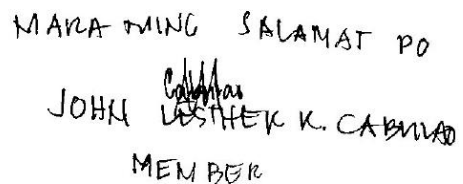 MARAMING SALAMAT PO
JOHN LESTHER K. CABULAO
MEMBER